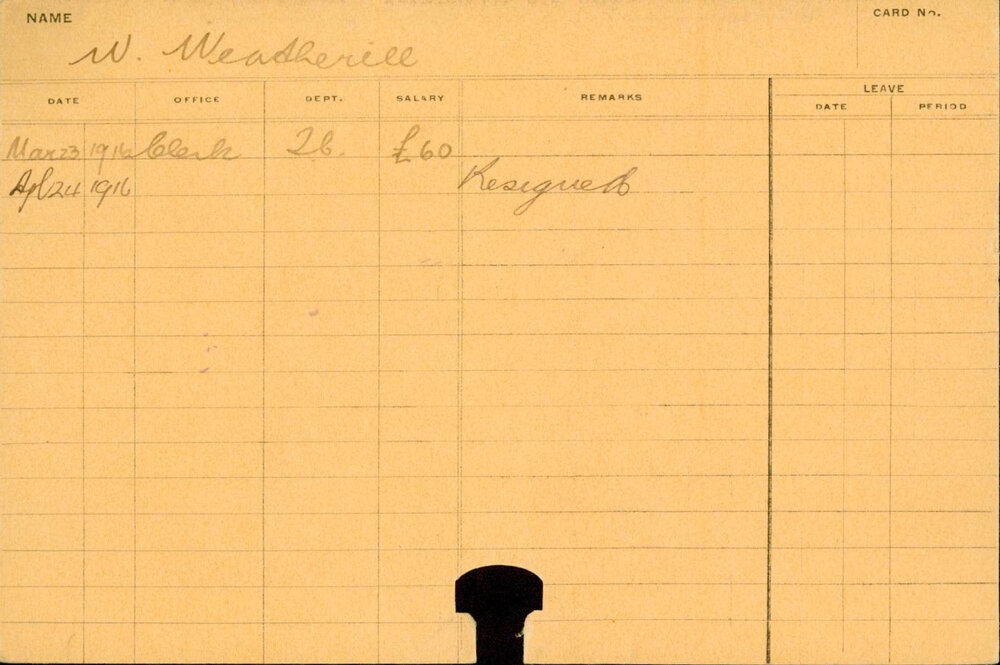 NAME
CARD No.
W. Weatherill
DATE OFFICE DEPT. SALARY REMARKS LEAVE
DATE PERIOD
Mar 23 1916 Clerk £60
Apl 24 1916 Resigned